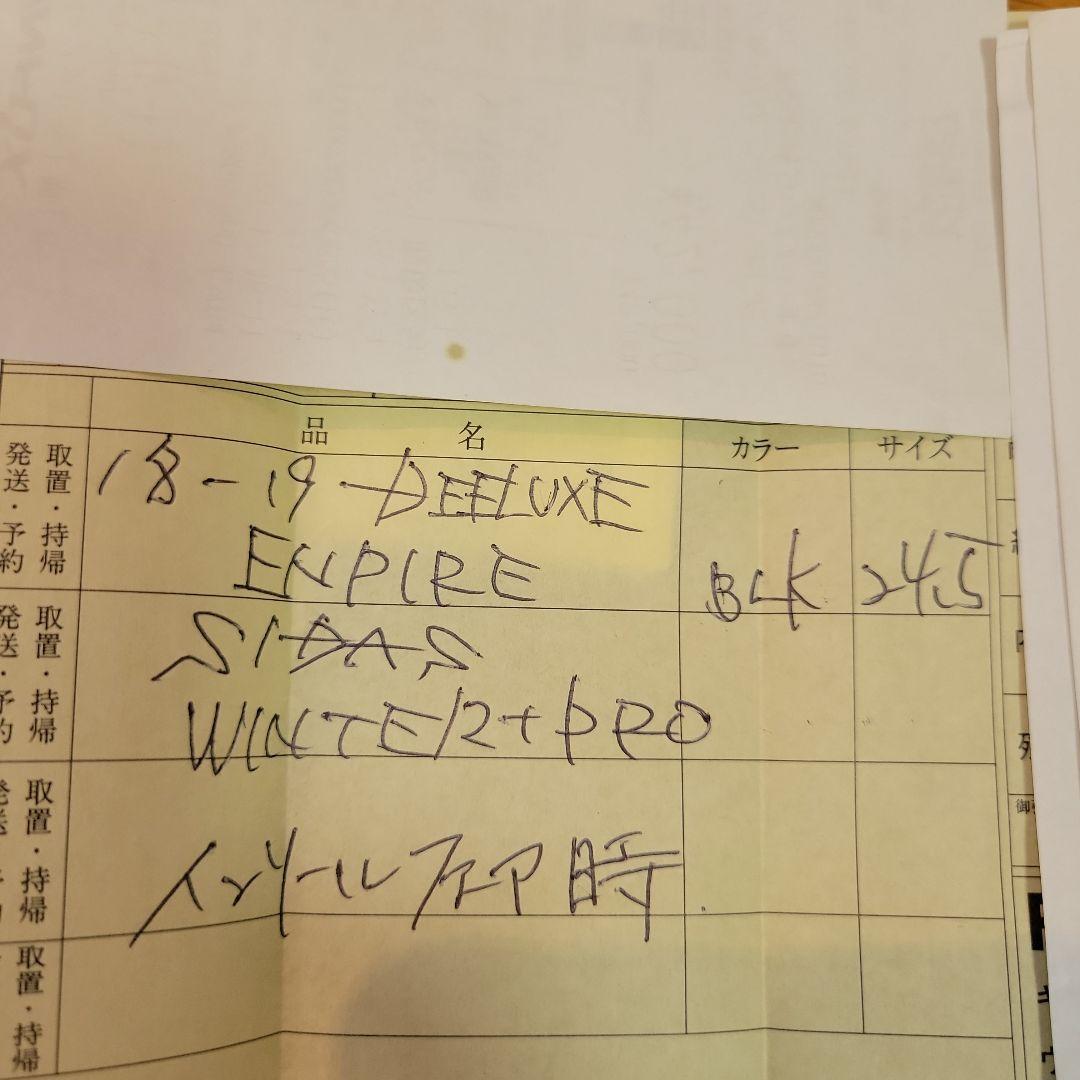 品名 カラー サイズ
取置・持帰
発送・予約
18-19 DEELUXE
ENPIRE BLK 24.5
取置・持帰
発送・予約
SIDAS
WINTER+PRO
取置・持帰
インソールフェア時
取置・持帰